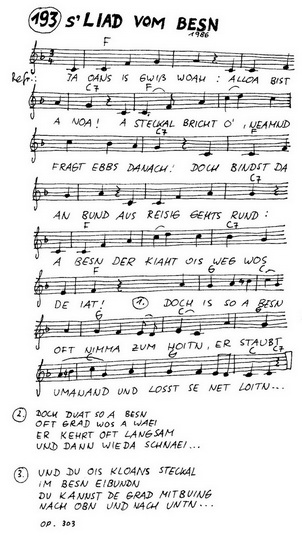 193 S'LIAD VOM BESN
1986
F
Refr.: JA OANS IS GWIß WOAH: ALLOA BIST
C7 F
A NOA! A STECKAL BRICHT O', NEAMND
C7 F
FRAGT EBBS DANACH! DOCH BINDST DA
C7
AN BUND AUS REISIG GEHTS RUND:
F C7
A BESN DER KIAHT OIS WEG WOS
F G C
DE IAT! 1. DOCH IS SO A BESN
G C G
OFT NIMMA ZUM HOITN, ER STAUBT
G C C7
UMANAND UND LOSST SE NET LOITN...
2. DOCH DUAT SO A BESN
OFT GRAD WOS A WAEI
ER KEHRT OFT LANGSAM
UND DANN WIEDA SCHNAEI...
3. UND DU OIS KLOANS STECKAL
IM BESN EIBUNDN
DU KANNST DE GRAD MITBUING
NACH OBN UND NACH UNTN...
OP. 303